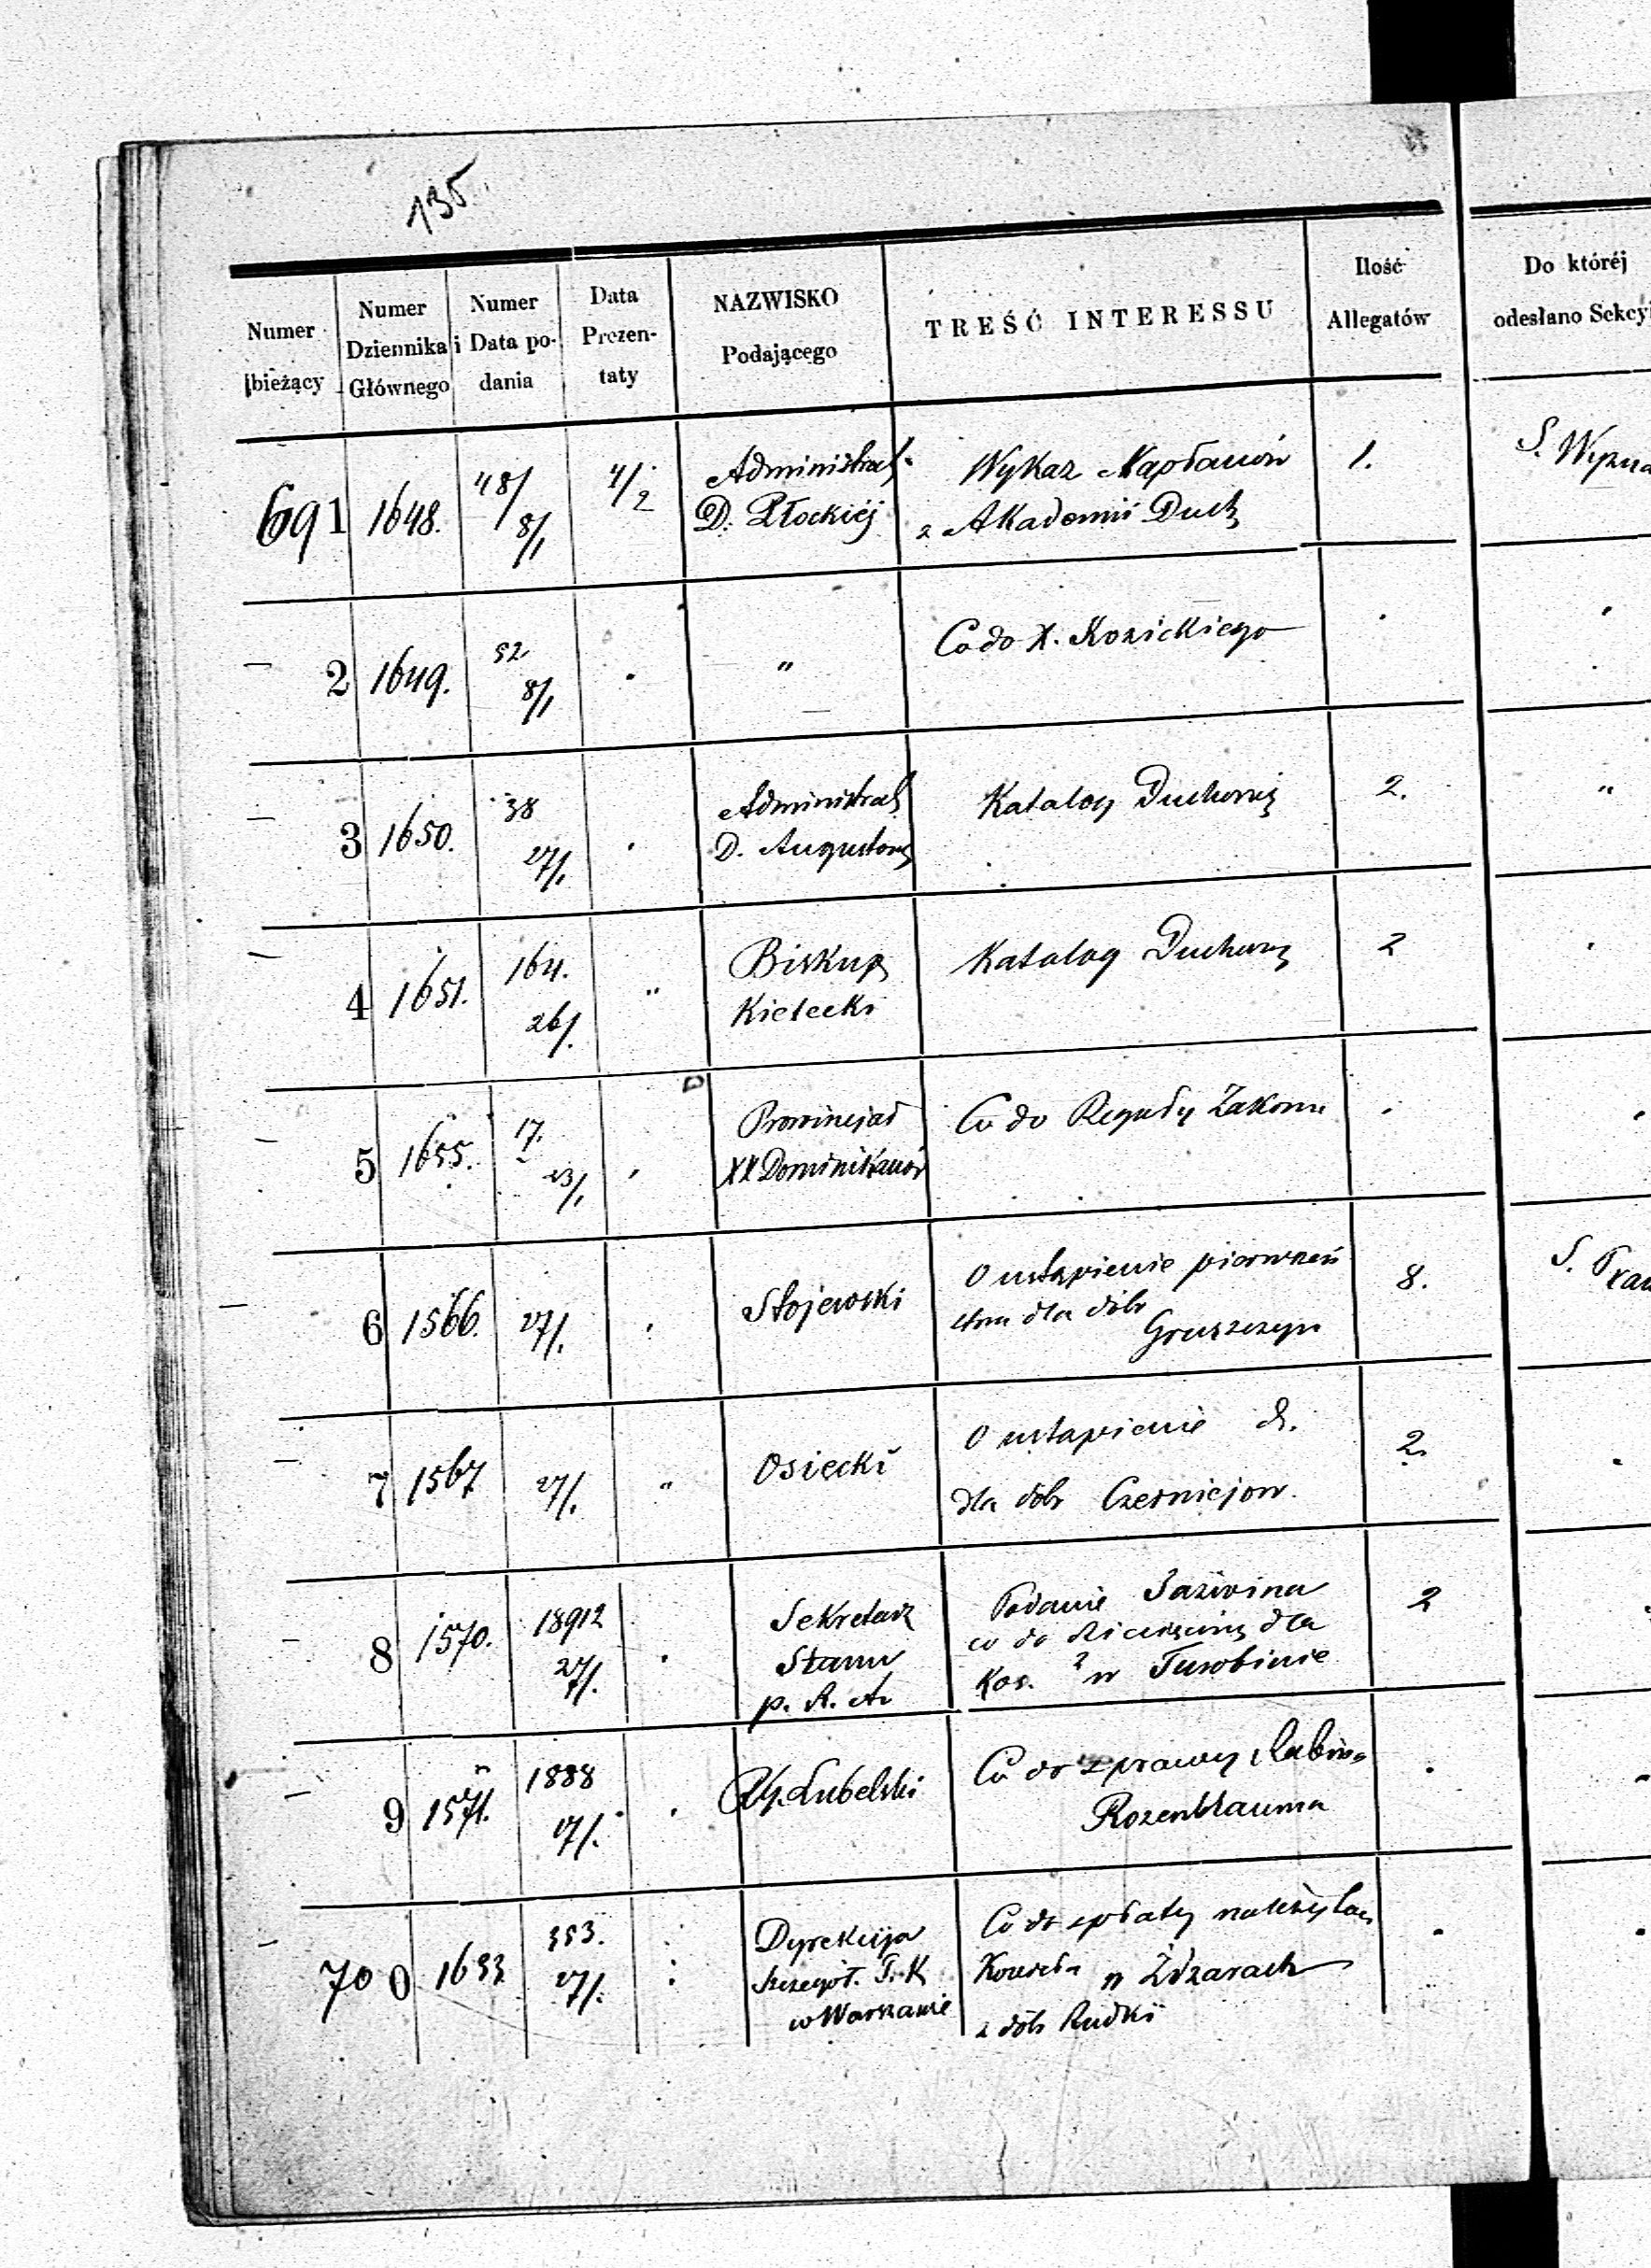 135.
Numer
bieżący
Numer
Dziennika
Głównego
Numer
i Data po-
dania
Data
Prezen-
taty
NAZWISKO
Podającego
TREŚĆ INTERESSU
Ilość
Allegatów
Do któréj
odesłano Sekcyi
691 1648. 48/ 8/1 4/2 Administrat. D. Płockiéj
Wykaz Kapłanów
z Akademii Duch
1. S. Wyzna
2 1649. 52 8/1 . "
Co do X. Kozickiego
3 1650. 38 27/1 . Administrat
D. Augustow
Katalog Duchown
2. "
4 1651. 164. 26/1 " Biskup
Kielecki
Katalog Duchown
2
5 1655. 17. 23/1 Prowincjał
XX Dominikanów
Co do Reguły Zakonu
6 1566. 27/1. Stojewski
O ustąpienie pierwszeń
stwa dla dóbr
Gruszczyn
8. S. Praw
7 1567 27/1. " Osiecki
O ustąpienie d.
dla dóbr Czerniejow.
2.
8 1570. 18912 27/1. Sekretarz
Stanu
p. K. A.
Podanie
co do dla
Koś. w Turobinie
2
9 1571. 1888 27/1. Lubelski
Co do sprawy Rabina
Rozenblauma
700 1633 353. 27/1. Dyrekcyja
Szczegół. T. K
w Warszawie
Co do spłaty należytoś
Kościoła w Żdżarach
z dóbr Rudki